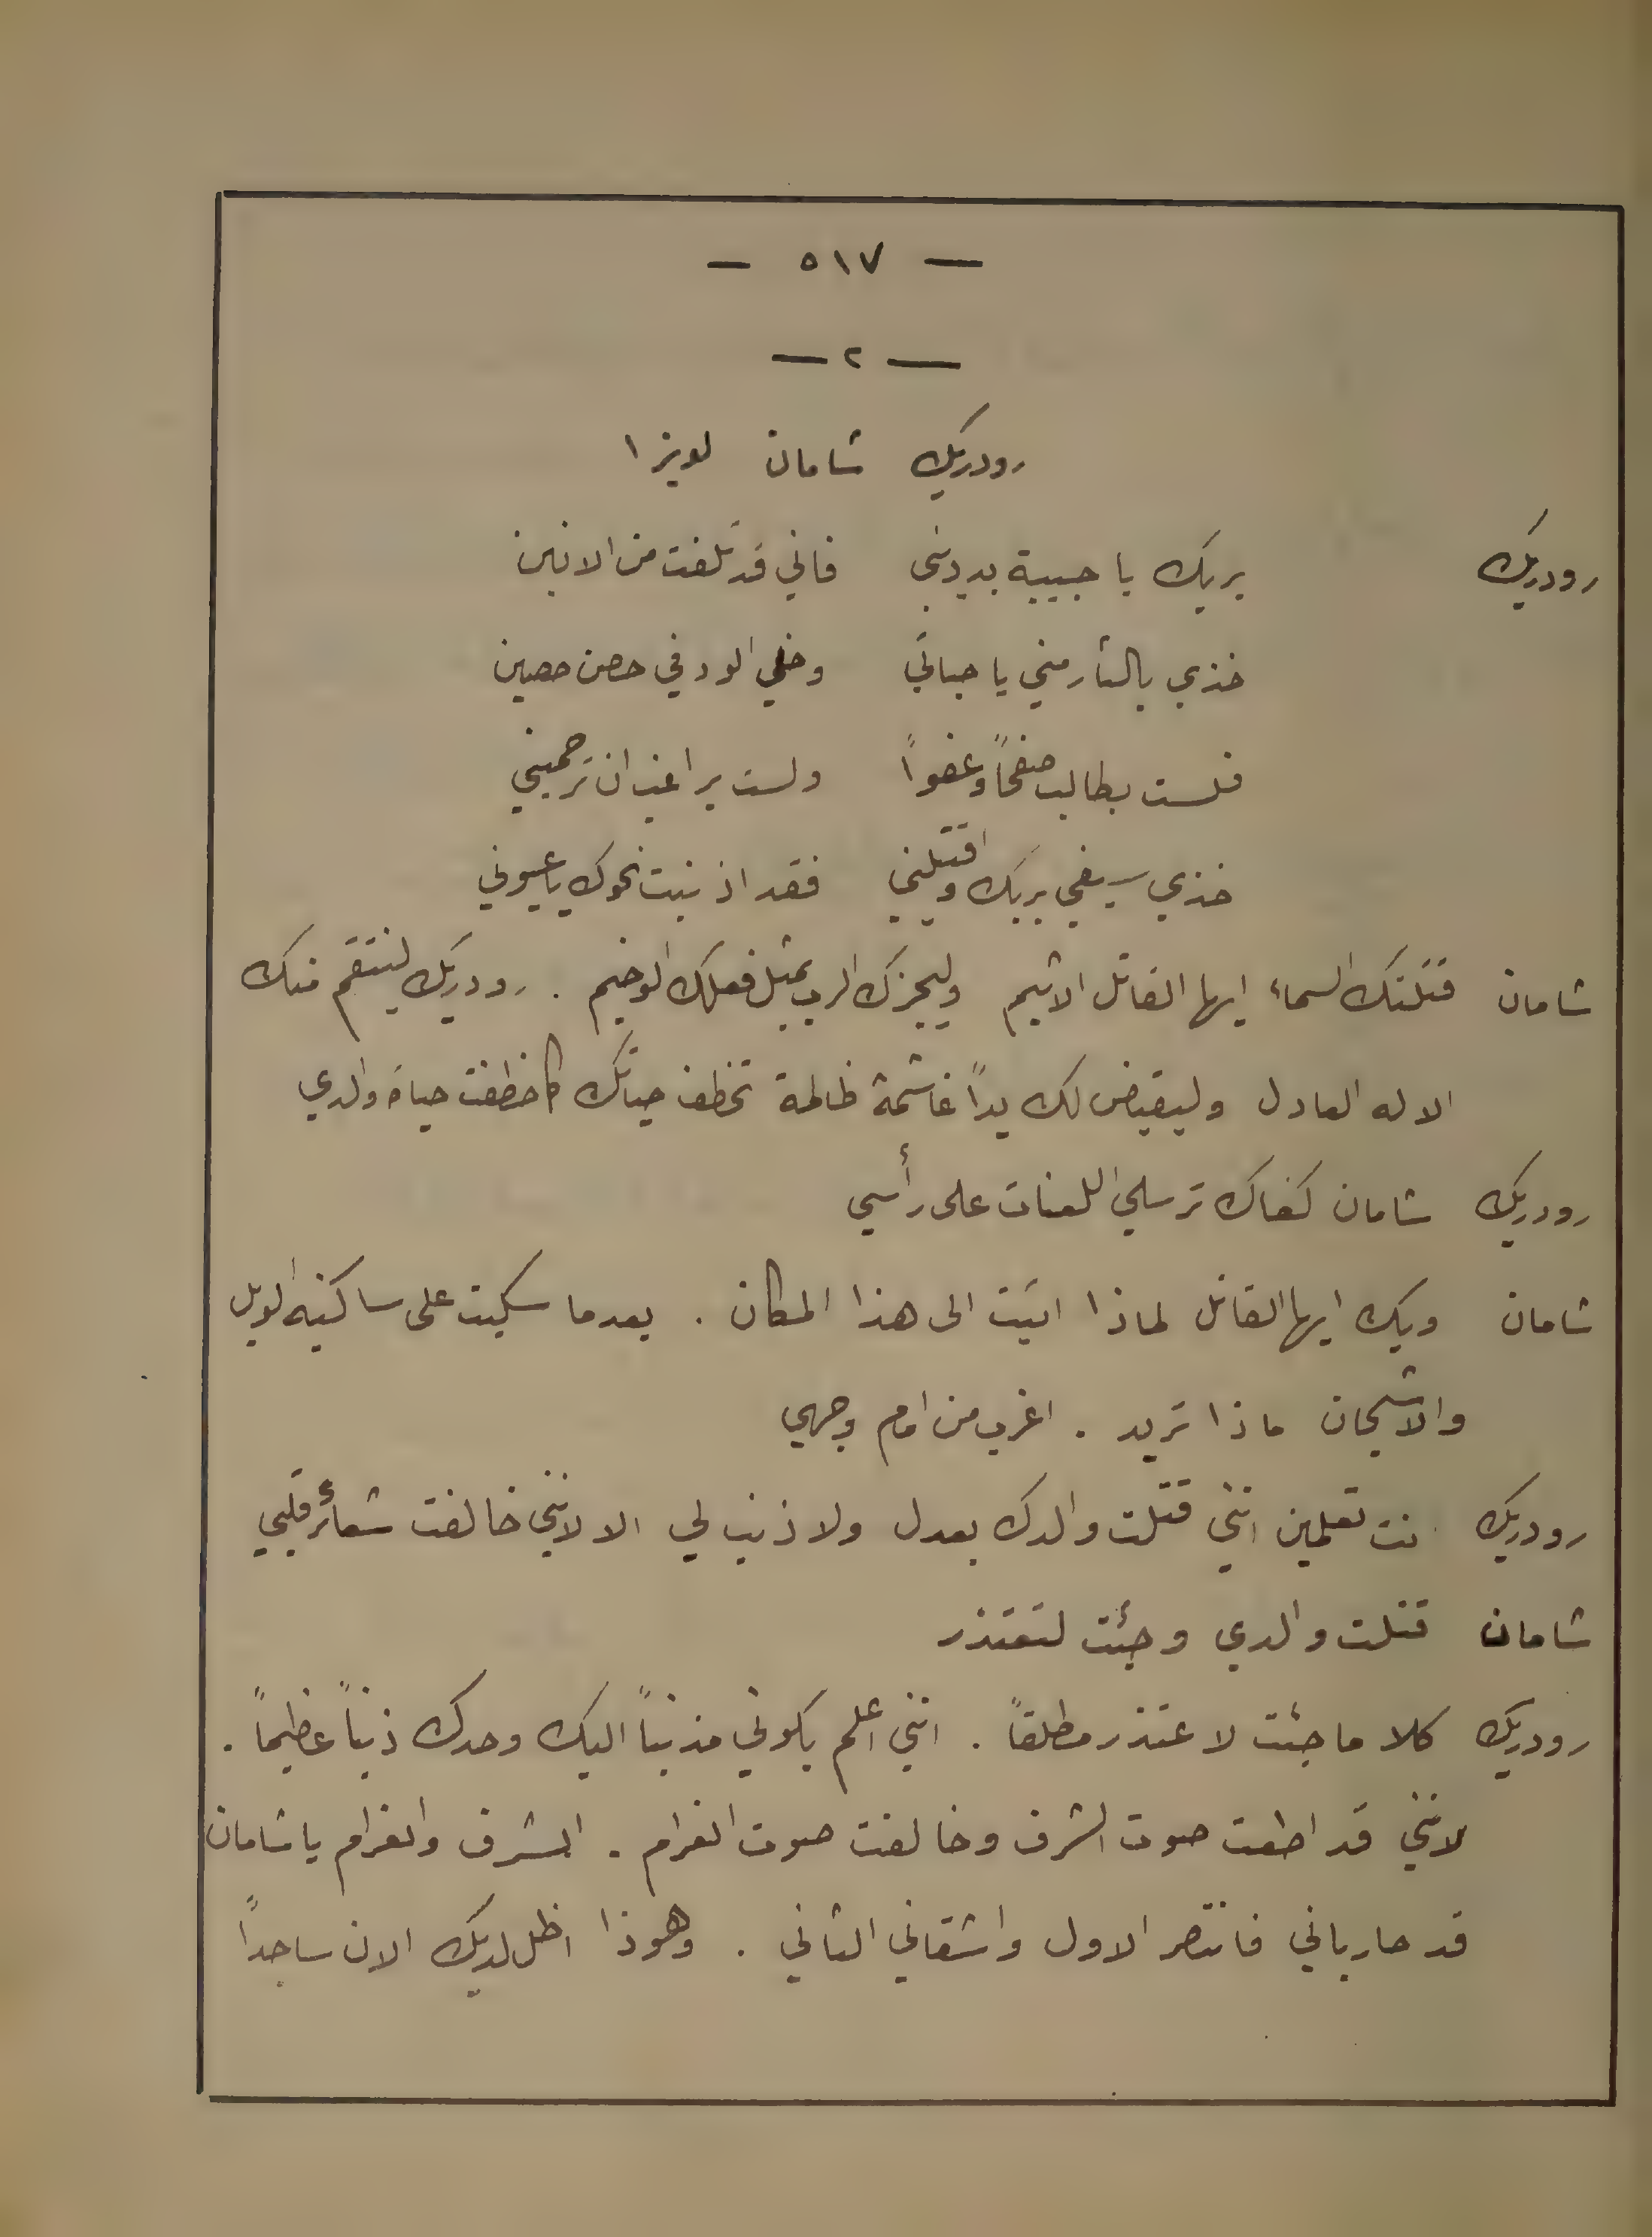 — ٥١٧ —
— ٢ —
رودريك شامان لويزا
رودريك بربك يا حبيبة بددني فاني قد تلفت من الانين
خذي بالثار مني يا حياتي وخلي الود في حصن حصين
فلست بطالب صفحاً وعفواً ولست براغب ان ترحميني
خذي سيفي بربك واقتليني فقد اذنبت نحوك ياعيوني
شامان قتلتك السماء ايها القاتل الاثيم وليجزك الرب بمثل فعلك الوخيم . رودريك لينتقم منك
الاله العادل وليقيض لك يداً غاشمة ظالمة تخطف حياتك كما خطفت حياة والدي
رودريك شامان كفاك ترسلي اللعنات على رأسي
شامان ويك ايها القاتل لماذا اتيت الى هذا المكان . بعدما سكبت على ساكنيه الويل
والاشجان ماذا تريد . اغرب من امام وجهي
رودريك انت تعلمين انني قتلت والدك بعدل ولا ذنب لي الا لانني خالفت شعائر قلبي
شامان قتلت والدي وجئت لتعتذر
رودريك كلا ما جئت لاعتذر مطلقاً . انني اعلم بكوني مذنباً اليك وحدك ذنباً عظيماً .
لانني قد اطعت صوت الشرف وخالفت صوت الغرام . الشرف والغرام ياشامان
قد حارباني فانتصر الاول واشقاني الثاني . وهوذا اظل لديك الان ساجداً